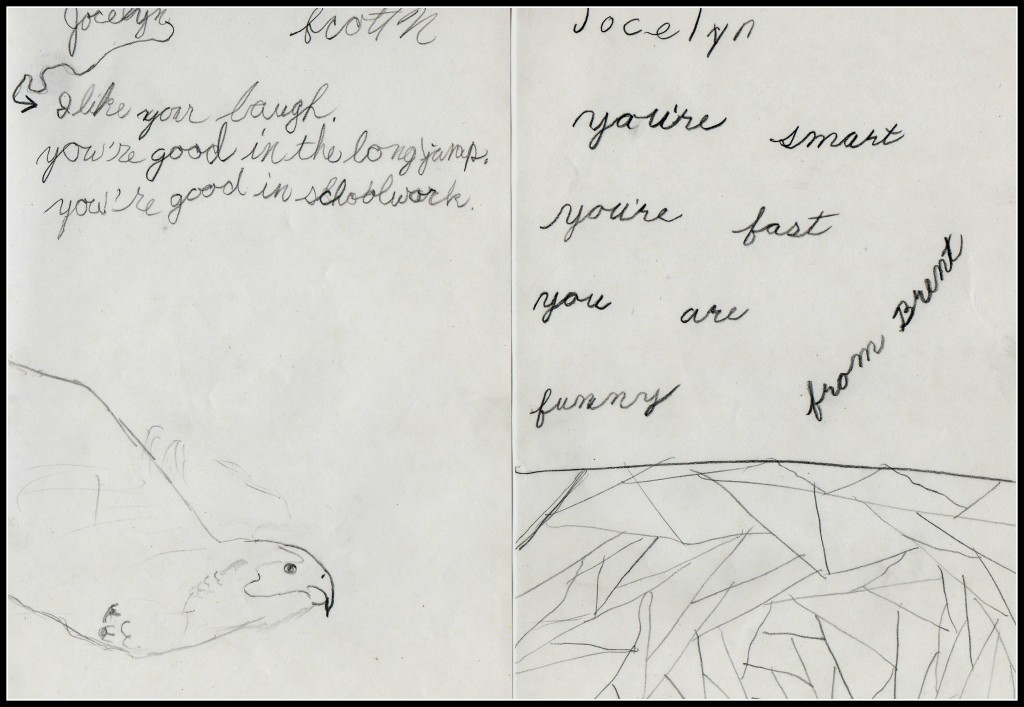 Jocelyn
Scott N
I like your laugh.
you're good in the long jump.
you're good in schoolwork.
Jocelyn
you're smart
you're fast
you are
funny
from Brent